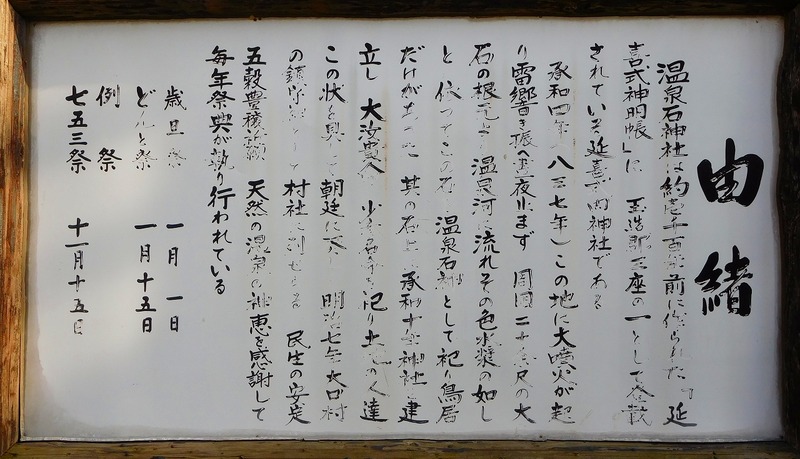 由緒
温泉石神社は約壱千百年前に作られた「延
喜式神明帳」に 玉造郡三座の一として登載
されている延喜式内神社である
承和四年(八三七年)この地に大噴火が起
り雷響き振い昼夜止まず 周囲二十余尺の大
石の根元より温泉河に流れその色水漿の如し
と 依ってこの石を温泉石神として祀り鳥居
だけが 其の石上に承和十年神社を建
立し 大汝貴命 少彦名命を祀り
この状を具 朝廷に 明治七年大口村
の鎮守 として 村社に列せられる 民生の安定
五穀豊穣祈願 天然の温泉の神恵を感謝して
毎年祭典が執り行われている
歳旦祭 一月一日
どんと祭 一月十五日
例祭
七五三祭 十一月十五日